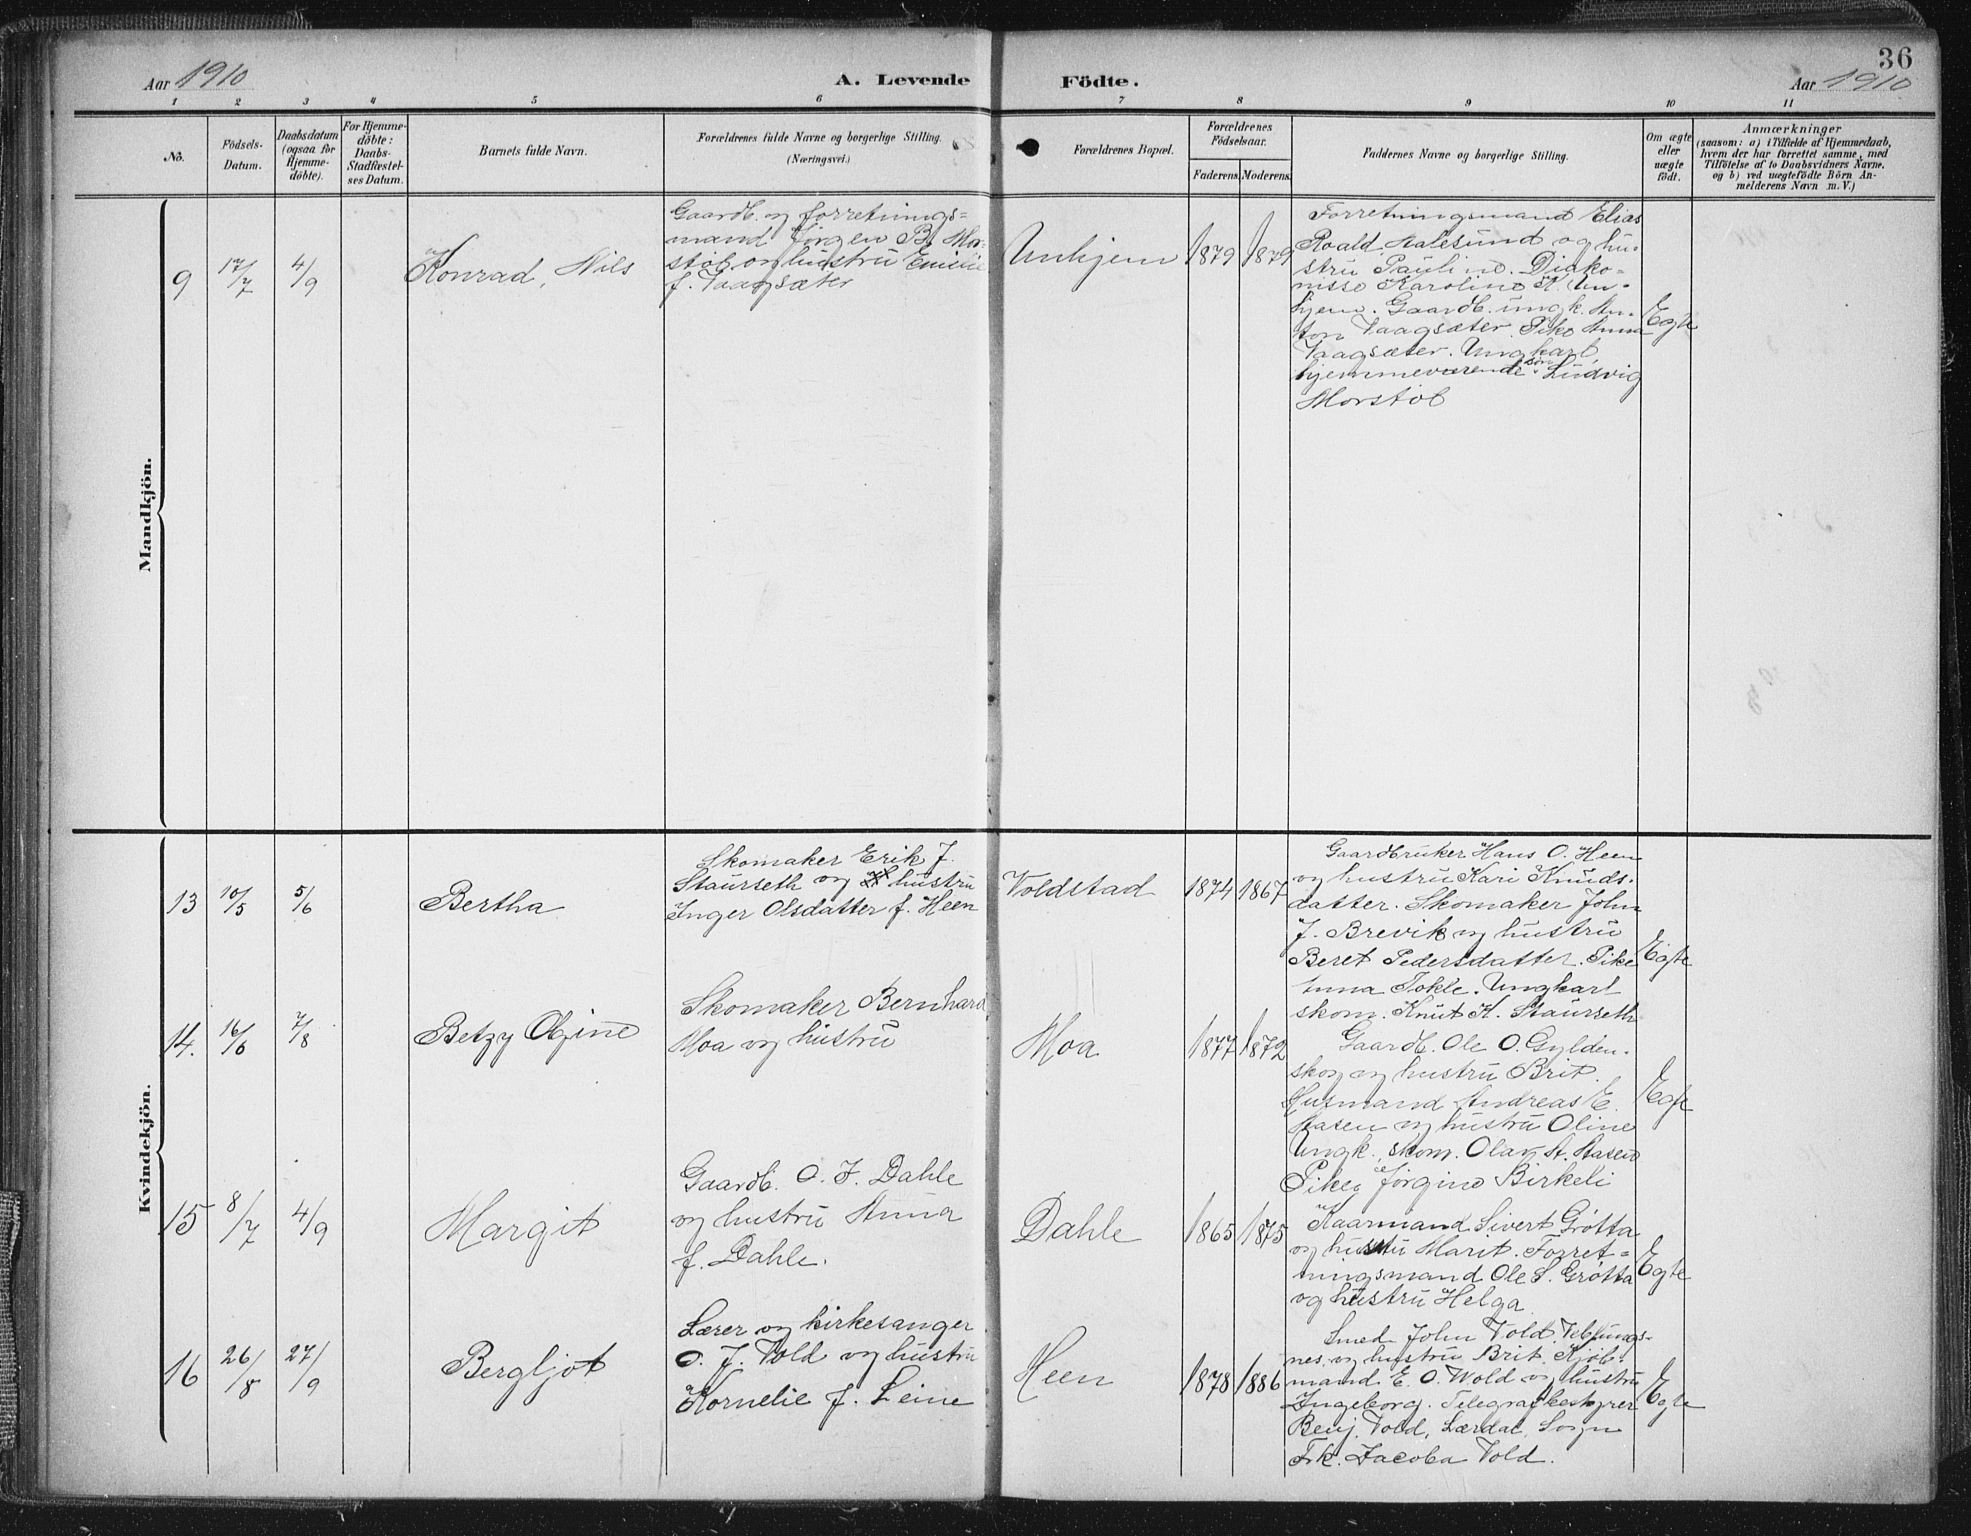 36
Aar 1910
A. Levende
Födte.
Aar 1910
1 2 3 4 5 6 7 8 9 10 11
No.
Födsels-
Datum.
Daabsdatum
(ogsaa for
Hjemme-
döbte).
For Hjemme-
döbte:
Daabs-
Stadfæstel-
ses Datum.
Barnets fulde Navn.
Forældrenes fulde Navne og borgerlige Stilling.
(Næringsvei.)
Forældrenes Bopæl.
Forældrenes
Födselsaar.
Faderens. Moderens.
Faddernes Navne og borgerlige Stilling.
Om ægte
eller
uægte
födt.
Anmærkninger
(saasom: a) i Tilfælde af Hjemmedaab,
hvem der har forrettet samme, med
Tilföielse af to Daabsvidners Navne,
og b) ved uægtefödte Börn An-
melderens Navn m. V.)
Mandkjön.
9
17/7
4/9
Konrad, Nils
Gaardb. og forretnings=
mand Jørgen B. Mor-
støl og hustru Emilie
f. Vaagsæter
Unhjem
1879 1879
Forretningsmand Elias
Roald Aalesund og hu-
stru Pauline. Diako-
nisse Karoline K. Un-
hjem. Gaardb. ungk. An-
ton Vaagsæter. Pike Anna
Vaagsæter. Ungkarl,
hjemmeværende søn Ludvig
Morstøl
Egte
Kvindekjön.
13
10/5
5/6
Bertha
Skomaker Erik J.
Staurseth og hustru
Inger Olsdatter f. Heen
Voldstad
1874 1867
Gaardbruker Hans O. Heen
og hustru Kari Knuds-
datter. Skomaker John
J. Brevik og hustru
Beret Pedersdatter. Pike
Anna Tokle. Ungkarl
skom. Knut K. Staurseth
Egte
14.
16/6
7/8
Betzy Ogine
Skomaker Bernhard
Moa og hustru
Moa
1877 1872
Gaardb. Ole O. Gylden-
skog og hustru Brit.
Husmand Andreas E.
Aasen og hustru Oline
Ungk. skom. Olav A. Aasen
Pike Jørgine Birkeli
Egte
15
8/7
4/9
Margit
Gaardb. O. J. Dahle
og hustru Anna
f. Dahle.
Dahle
1865 1875
Kaarmand Sivert Grøtta
og hustru Marit. Forret=
ningsmand Ole S. Grøtta
og hustru Helga
Egte
16
26/8
27/9
Bergljot
Lærer og kirkesanger
O. J. Vold og hustru
Kornelie f. Leine
Heen
1878 1886
Smed John Vold, Veblungs-
nes og hustru Brit. Kjøb-
mand E. O. Wold og hustru
Ingeborg. Telegrafbestyrer
Benj. Vold, Lærdal, Sogn
Frk. Jacoba Vold.
Egte